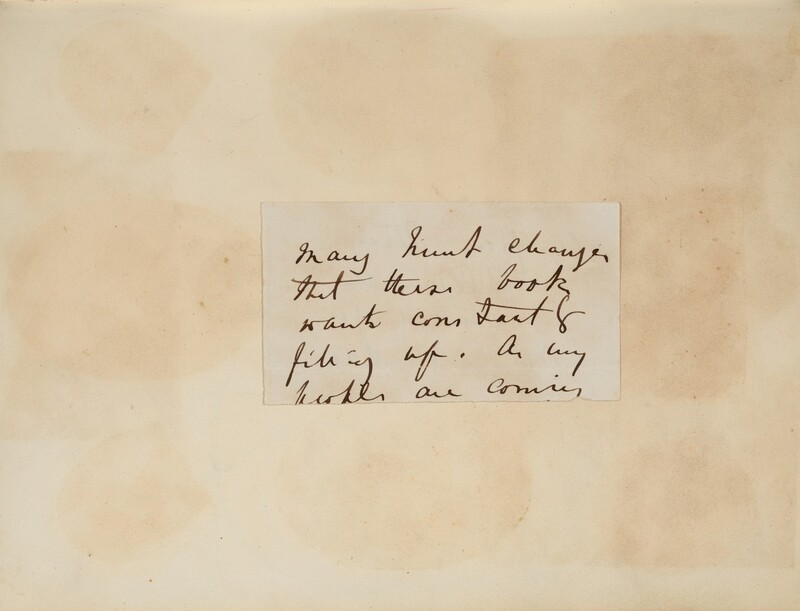 many hunt changes
that these book
wants constantly
filling up. As my
people are coming